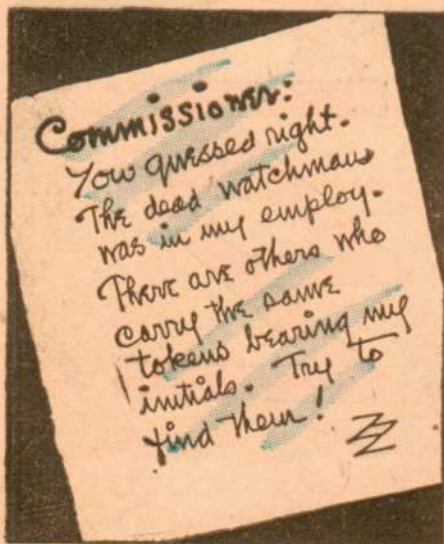 Commissioner:
You guessed right.
The dead watchman
was in my employ.
There are others who
carry the same
tokens bearing my
initials. Try to
find them!
ZZ